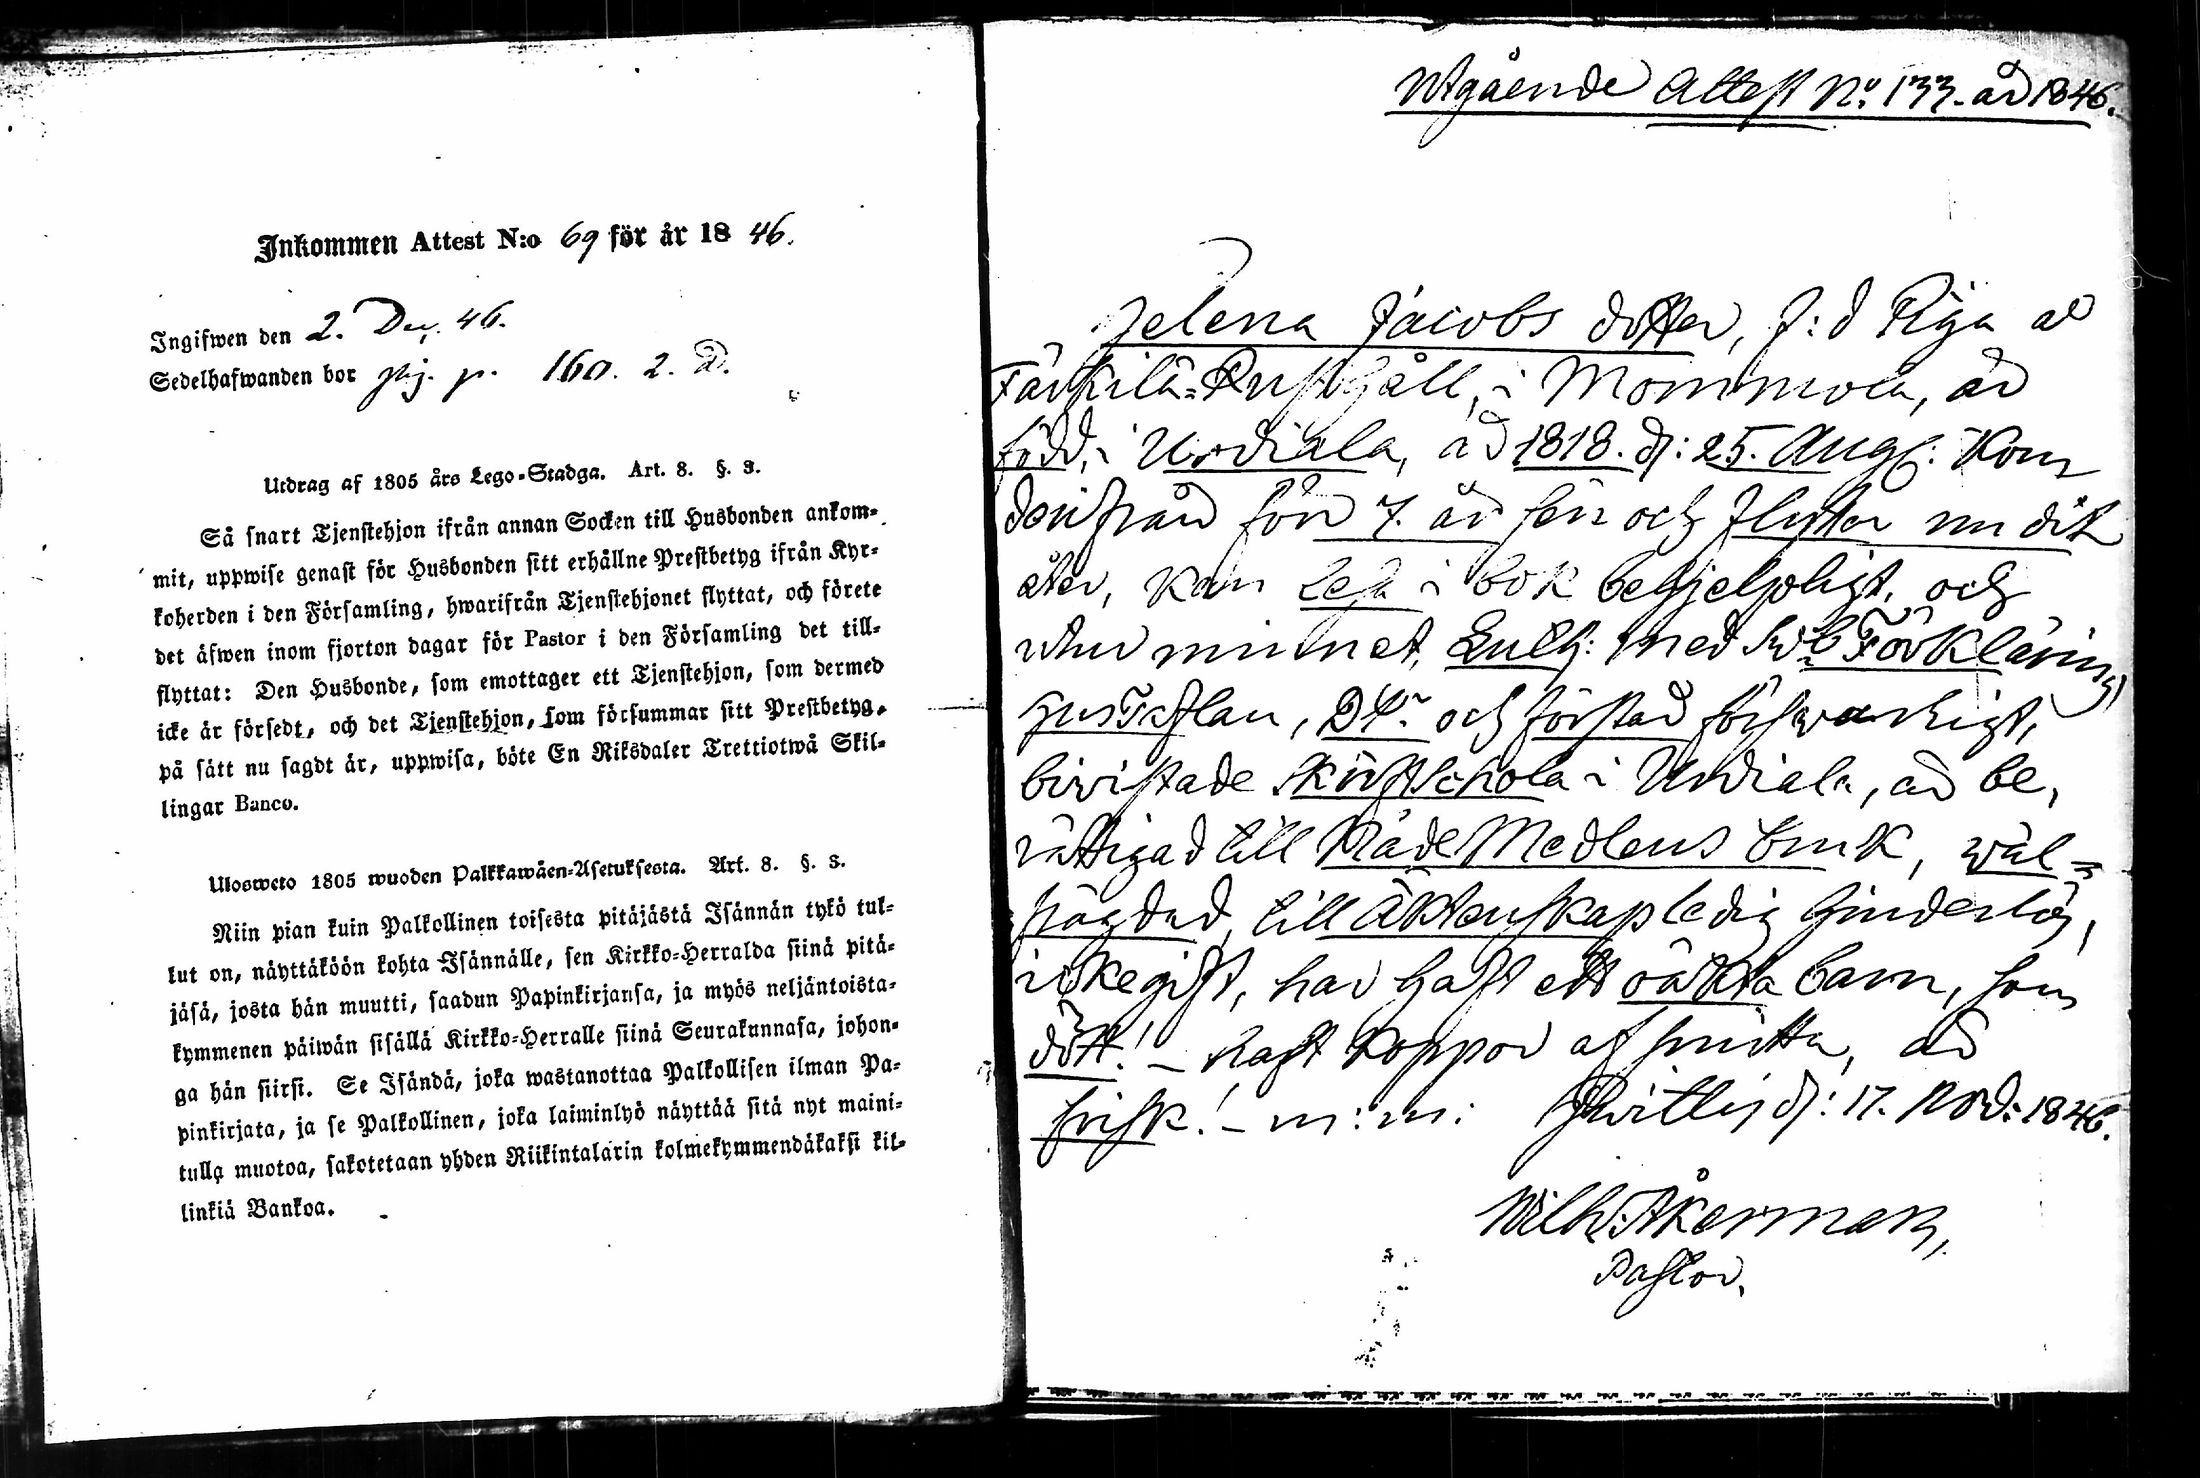 Inkommen Attest N:o 69 för år 1846.
Ingifwen den 2. Dec. 46.
Sedelhafwanden bor p. 160. 2.
Utdrag af 1805 års Lego-Stadga. Art. 8. §. 3.
Så snart Tjenstehjon ifrån annan Socken till Husbonden ankom-
mit, uppwise genast för Husbonden sitt erhållne Prestbetyg ifrån Kyr-
koherden i den Församling, hwarifrån Tjenstehjonet flyttat, och förete
det äfwen inom fjorton dagar för Pastor i den Församling det till-
flyttat: Den Husbonde, som emottager ett Tjenstehjon, som dermed
icke är försedt, och det Tjenstehjon, som försummar sitt Prestbetyg,
på sätt nu sagdt är, uppwisa, böte En Riksdaler Trettiotwå Skil-
lingar Banco.
Ulosweto 1805 wuoden Palkkawäen-Asetuksesta. Art. 8. §. 3.
Niin pian kuin Palkollinen toisesta pitäjästä Isännän tykö tul-
lut on, näyttäköön kohta Isännälle, sen Kirkko-Herralda siinä pitä-
jäsä, josta hän muutti, saadun Papinkirjansa, ja myös neljäntoista-
kymmenen päiwän sisällä Kirkko-Herralle siinä Seurakunnasa, johon-
ga hän siirsi. Se Isändä, joka wastanottaa Palkollisen ilman Pa-
pinkirjata, ja se Palkollinen, joka laiminlyö näyttää sitä nyt maini-
tulla muotoa, sakotetaan yhden Riikintalarin kolmekymmendäkaksi kil-
linkiä Bankoa.
Utgående Attest No: 133. år 1846.
Helena Jacobs dotter, f:d Piga å
Rusthåll, i Mommola, är
född, i Urdiala, år 1818. d: 25. Aug: kom
derifrån för 7. år sen och flyttar nu dit
åter, kan läsa i bok behjelpligt, och
utur minnet, Luth: med Förklaring
Hustaflan, och förstår försvarligt,
bivistade Skriftschola i Urdiala, är be,
rättigad till Nåde Medlens bruk, wäl-
frägdad, till Äktenskap ledig hinderlös,
icke gift, har haft ett oäkta barn, som
dött! - haft koppor af smitta, är
frisk! - m: m: Hvittis d: 17. Nov: 1846.
Wilh: Åkerman,
Pastor.